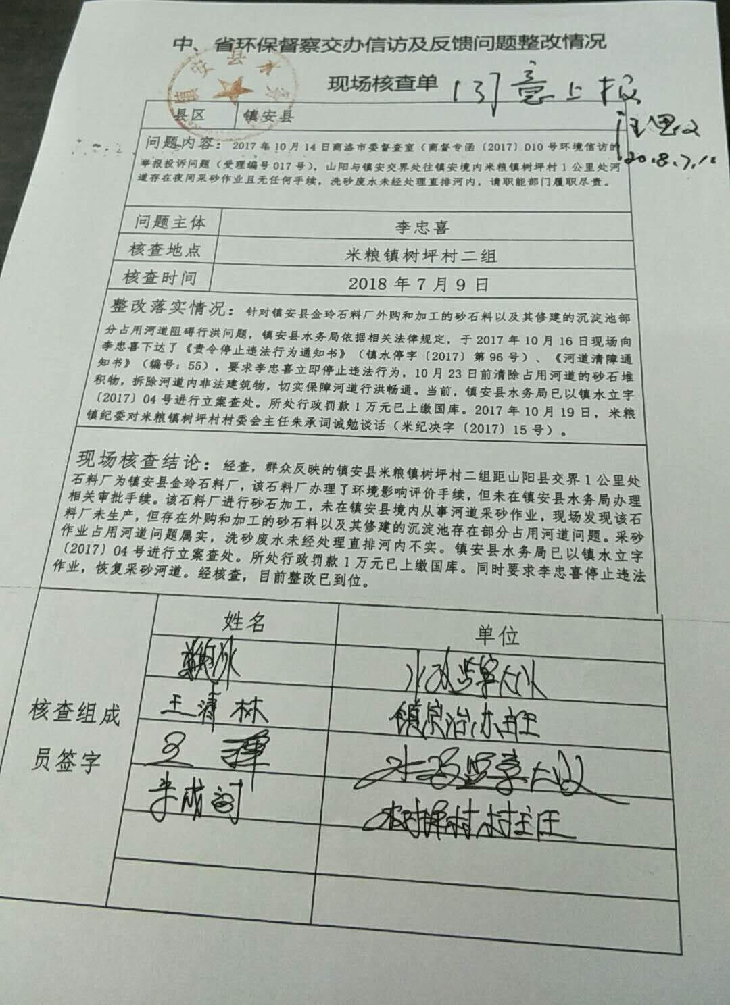 中、省环保督察交办信访及反馈问题整改情况
现场核查单
同意上报
2018.7.1
镇安县水务
县区 镇安县
问题内容：2017年10月14日商洛市委督查室（商督专函〔2017〕010号环境信访的
举报投诉问题（受理编号017号），山阳与镇安交界处往镇安境内米粮镇树坪村1公里处河
道存在夜间采砂作业且无任何手续，洗砂废水未经处理直排河内，请职能部门履职尽责。
问题主体 李忠喜
核查地点 米粮镇树坪村二组
核查时间 2018年7月9日
整改落实情况：针对镇安县金玲石料厂外购和加工的砂石料以及其修建的沉淀池部
分占用河道阻碍行洪问题，镇安县水务局依据相关法律规定，于2017年10月16日现场向
李忠喜下达了《责令停止违法行为通知书》（镇水停字〔2017〕第96号）、《河道清障通
知书》（编号：55），要求李忠喜立即停止违法行为，10月23日前清除占用河道的砂石堆
积物，拆除河道内非法建筑物，切实保障河道行洪畅通。当前，镇安县水务局已以镇水立字
〔2017〕04号进行立案查处。所处行政罚款1万元已上缴国库。2017年10月19日，米粮
镇纪委对米粮镇树坪村村委会主任朱承词诫勉谈话（米纪决字〔2017〕15号）。
现场核查结论：经查，群众反映的镇安县米粮镇树坪村二组距山阳县交界1公里处
石料厂为镇安县金玲石料厂，该石料厂办理了环境影响评价手续，但未在镇安县水务局办理
相关审批手续。该石料厂进行砂石加工，未在镇安县境内从事河道采砂作业，现场发现该石
料厂未生产，但存在外购和加工的砂石料以及其修建的沉淀池存在部分占用河道问题。采砂
作业占用河道问题属实，洗砂废水未经处理直排河内不实。镇安县水务局已以镇水立字
〔2017〕04号进行立案查处。所处行政罚款1万元已上缴国库。同时要求李忠喜停止违法
作业，恢复采砂河道。经核查，目前整改已到位。
核查组成
员签字
姓名 单位
水政监察大队
王清林 镇综治办主任
水政监察大队
树坪村村主任